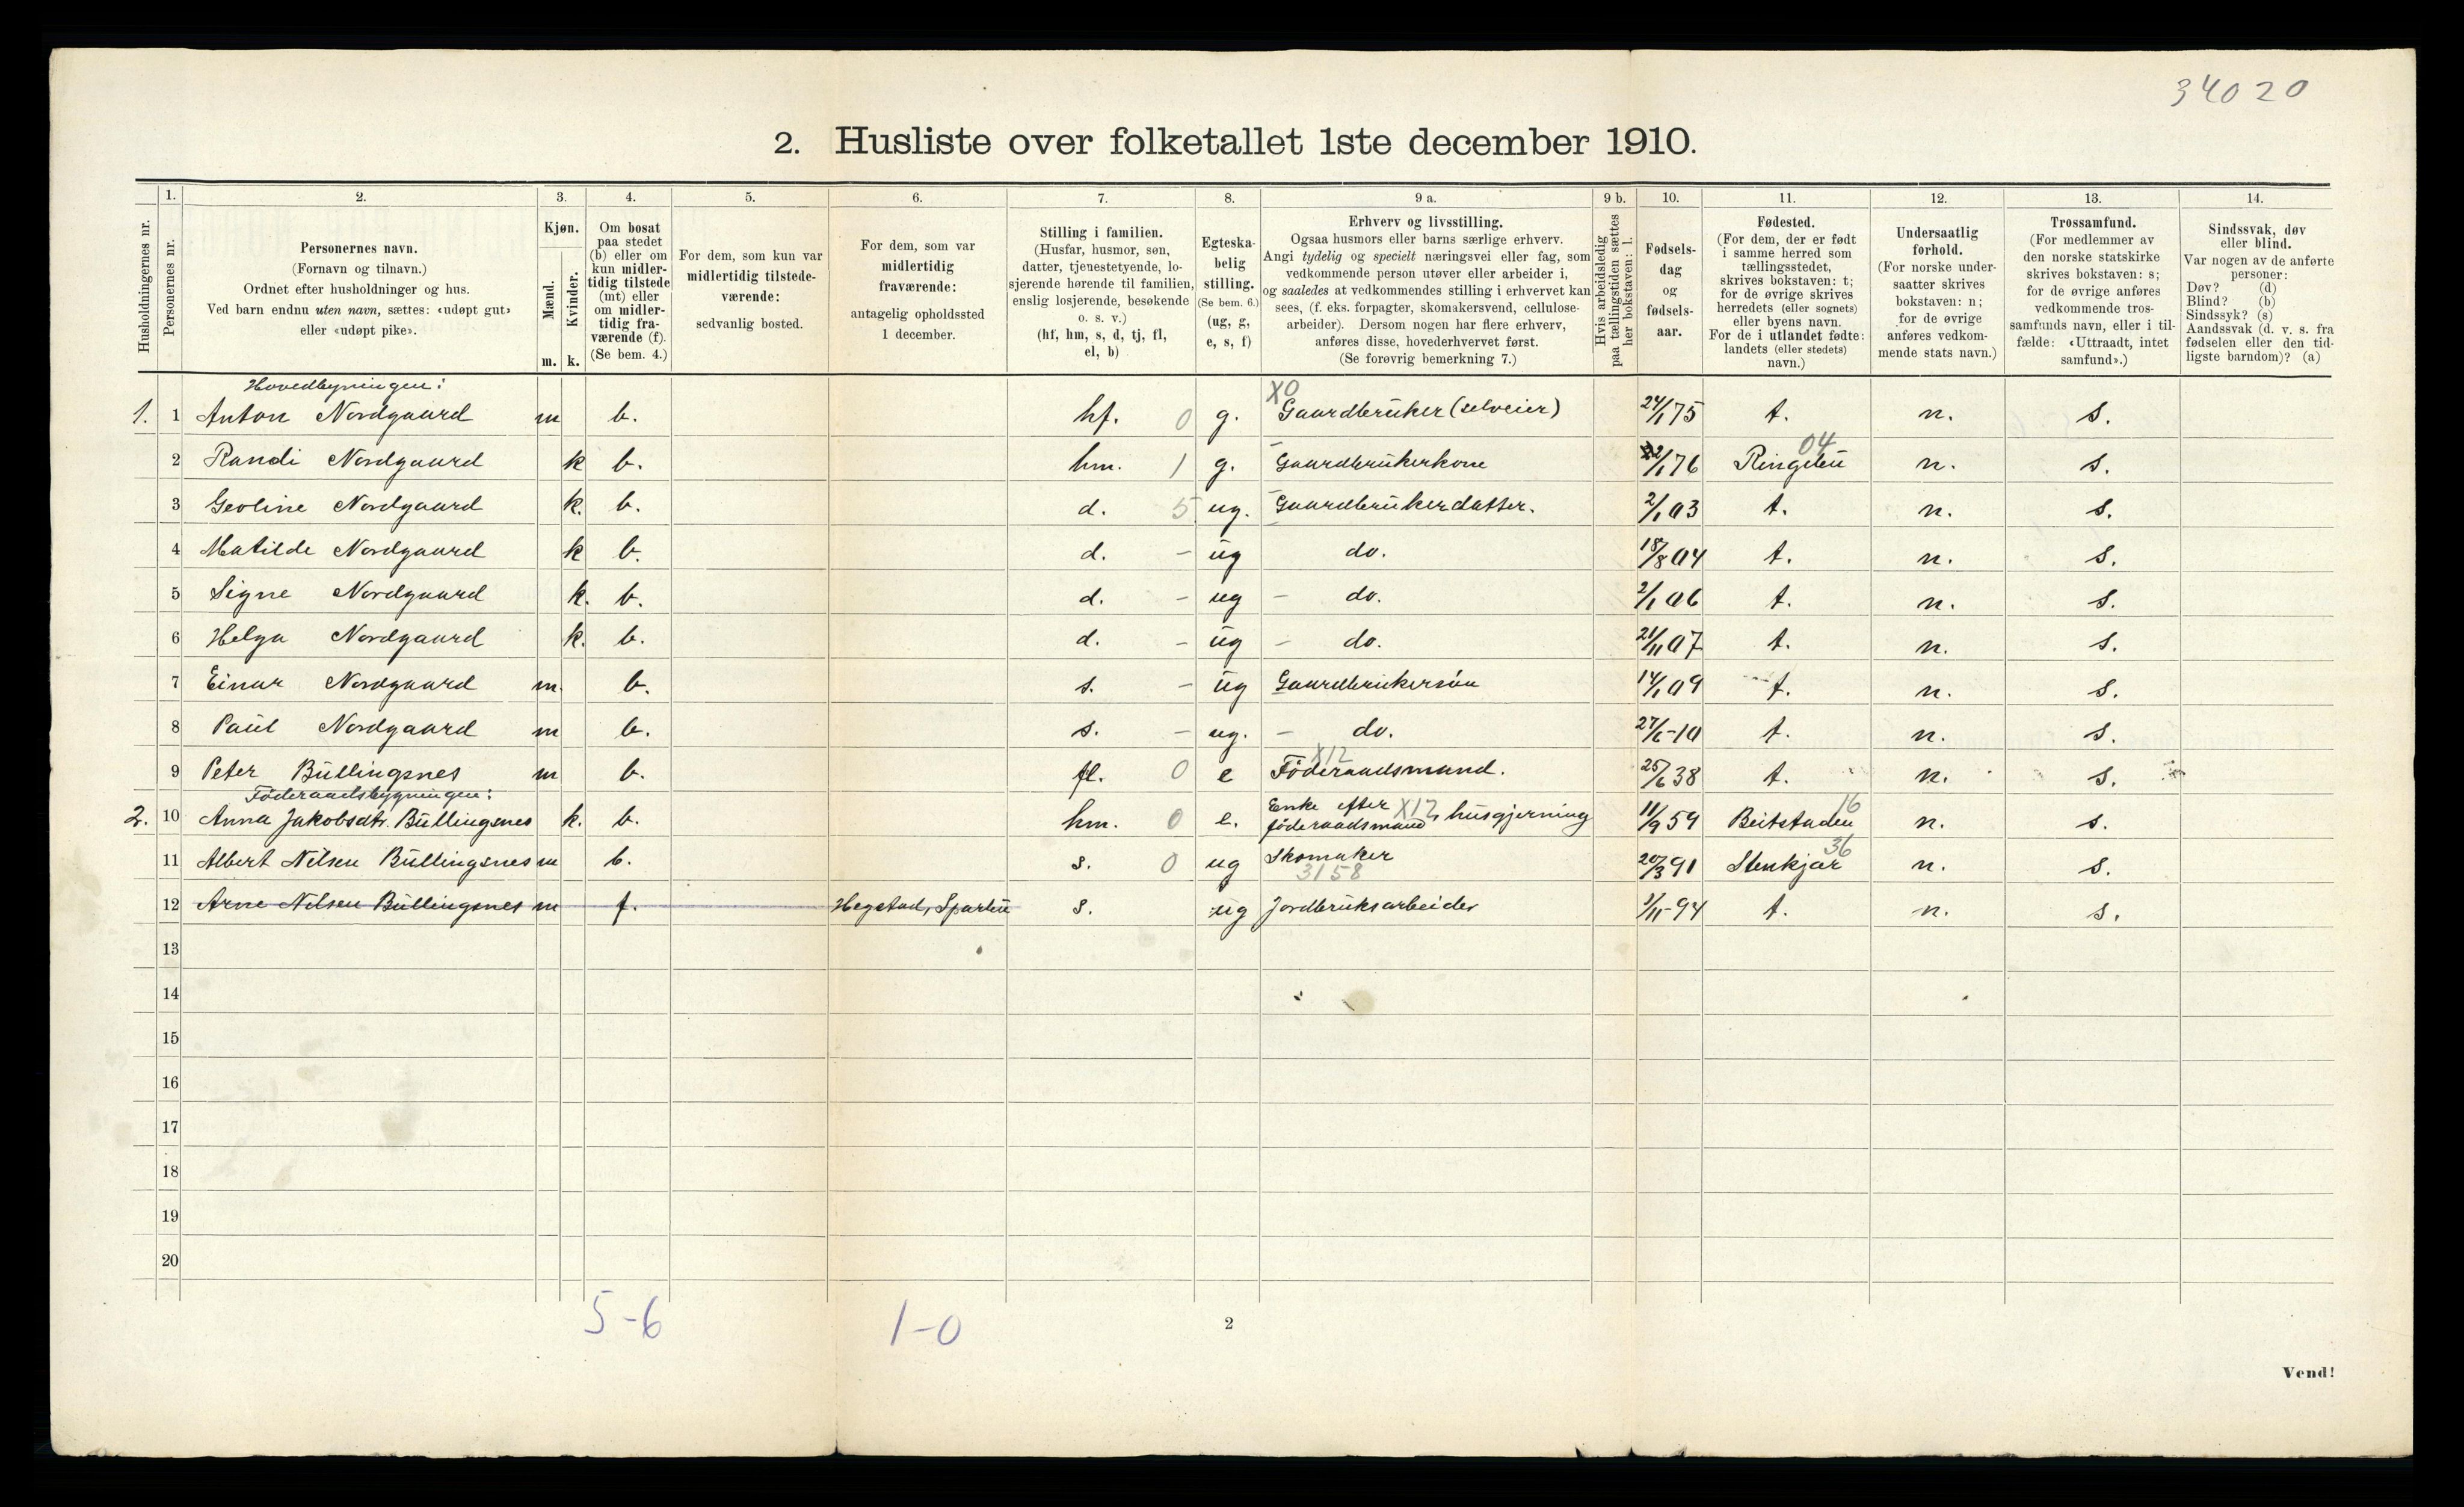 34020
2. Husliste over folketallet 1ste december 1910.
Husholdningernes nr.
1.
Personernes nr.
2.
Personernes navn.
(Fornavn og tilnavn.)
Ordnet efter husholdninger og hus.
Ved barn endnu uten navn, sættes: «udøpt gut»
eller «udøpt pike».
3.
Kjøn.
Mænd.
Kvinder.
m. k.
4.
Om bosat
paa stedet
(b) eller om
kun midler-
tidig tilstede
(mt) eller
om midler-
tidig fra-
værende (f).
(Se bem. 4.)
5.
For dem, som kun var
midlertidig tilstede-
værende:
sedvanlig bosted.
6.
For dem, som var
midlertidig
fraværende:
antagelig opholdssted
1 december.
7.
Stilling i familien.
(Husfar, husmor, søn,
datter, tjenestetyende, lo-
sjerende hørende til familien,
enslig losjerende, besøkende
o. s. v.)
(hf, hm, s, d, tj, fl,
el, b)
8.
Egteska-
belig
stilling.
(Se bem. 6.)
(ug, g,
e, s, f)
9 a.
Erhverv og livsstilling.
Ogsaa husmors eller barns særlige erhverv.
Angi tydelig og specielt næringsvei eller fag, som
vedkommende person utøver eller arbeider i,
og saaledes at vedkommendes stilling i erhvervet kan
sees, (f. eks. forpagter, skomakersvend, cellulose-
arbeider). Dersom nogen har flere erhverv,
anføres disse, hovederhvervet først.
(Se forøvrig bemerkning 7.)
9 b.
Hvis arbeidsledig
paa tællingstiden sættes
her bokstaven: l.
10.
Fødsels-
dag
og
fødsels-
aar.
11.
Fødested.
(For dem, der er født
i samme herred som
tællingsstedet,
skrives bokstaven: t;
for de øvrige skrives
herredets (eller sognets)
eller byens navn.
For de i utlandet fødte:
landets (eller stedets)
navn.)
12.
Undersaatlig
forhold.
(For norske under-
saatter skrives
bokstaven: n;
for de øvrige
anføres vedkom-
mende stats navn.)
13.
Trossamfund.
(For medlemmer av
den norske statskirke
skrives bokstaven: s;
for de øvrige anføres
vedkommende tros-
samfunds navn, eller i til-
fælde: «Uttraadt, intet
samfund».)
14.
Sindssvak, døv
eller blind.
Var nogen av de anførte
personer:
Døv? (d)
Blind? (b)
Sindssyk? (s)
Aandssvak (d. v. s. fra
fødselen eller den tid-
ligste barndom)? (a)
Hovedbyningen:
X0
1. 1 Anton Nordgaard m b. hf. 0 g. Gaardbruker (selveier) 24/1 75 t. n. s.
04
2 Randi Nordgaard k b. hm. 1 g. Gaardbrukerkone /1 76 Ringebu n. s.
3 Geoline Nordgaard k. b. d. 5 ug. Gaardbrukerdatter. 2/1 03 t. n. s.
4 Matilde Nordgaard k b. d. - ug do. 18/8 04 t. n. s.
5 Signe Nordgaard k. b. d. - ug - do. 2/1 06 t. n. s.
6 Helga Nordgaard k. b. d. - ug - do. 21/11 07 t. n. s.
7 Einar Nordgaard m. b. s. - ug Gaardbrukersön 14/1 09 t. n. s.
8 Paul Nordgaard m b. s. - ug. - do. 27/6-10 t. n. s.
X12
9 Peter Büllingsnes m b. fl. 0 e Föderaadsmand. 25/6 38 t. n. s.
Föderaadsbygningen:
2. 10 Anna Jakobsdtr. Büllingsnes k. b. hm. 0 e. Enke efter föderaadsmand, X12 husgjerning 11/9 59 Beitstaden 16 n. s.
11 Albert Nilsen Büllingsnes m b. s. 0 ug Skomaker 3158 20/3 91 Stenkjær 36 n. s.
12 Arne Nilsen Büllingsnes m f. Hegstad, Sparbu s. ug Jordbruksarbeider /11-94 t. n. s.
13
14
15
16
17
18
19
20
5-6
1-0
2
Vend!